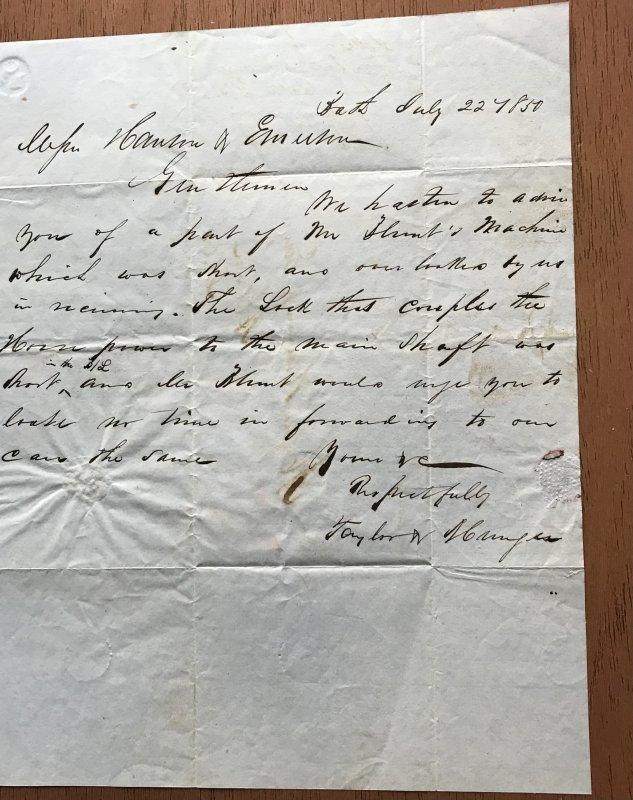 Bath July 22 1850
Messrs Hanson & Emerson
Gentlemen
We hasten to advise
you of a part of Mr Hunt's Machine
which was short, and overlooked by us
in receiving. The Lock that couples the
Horse power to the main Shaft was
in the B/L
Short and Mr Hunt would urge you to
loose no time in forwarding to our
care the same Yours &c
Respectfully
Taylor &